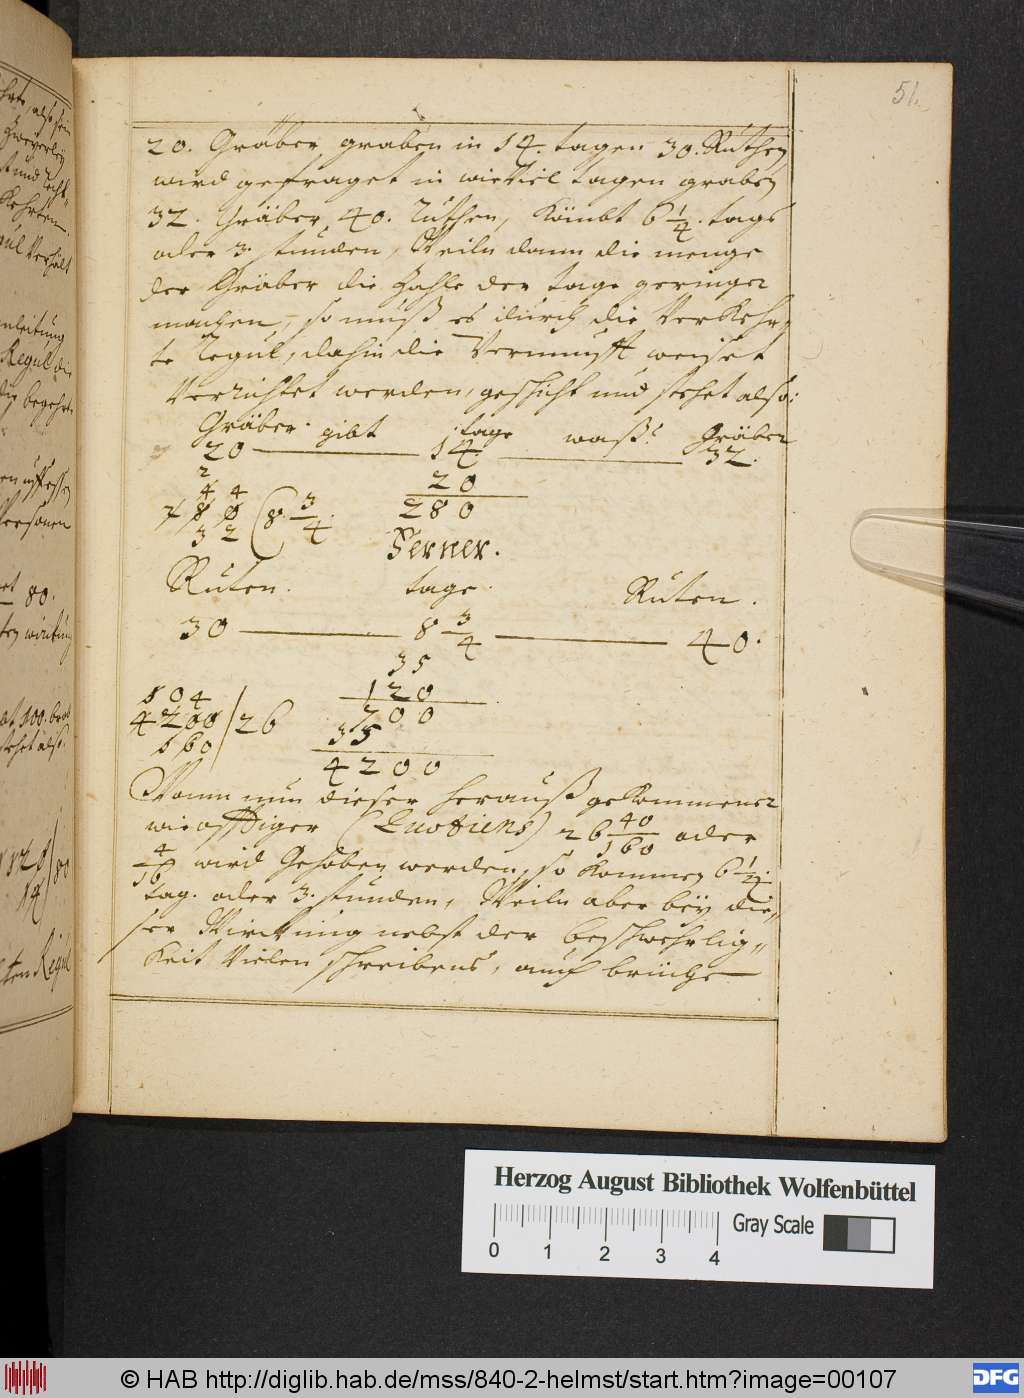 51
20. Gräber graben in 14. tagen 30. Ruthen
wird gefraget in wieviel tagen graben
32. Gräber, 40. Ruthen, Kömbt 6 1/4. tags
oder 3. stunden, Weiln dann die menge
der Gräber die Zahle der tage geringer
machen, so muß es durch die Verkehr,
te Regul, dahin die Vernunfft weiset
Verrichtet werden, geschicht und stehet also:
Gräber. gibt tage waß? Gräber
20 14 32.
20
280
(8 3/4.
32
Ferner.
Ruten. tage. Ruten.
30 8 3/4 40.
35
120
700
35
4200
104
4200 / 26
160
Wann nun dieser herauß gekommener
(Quotiens) 26 40/160 oder
4/16 wird Gehoben werden, so kommen 6 1/4.
tag. oder 3. stunden, Weiln aber bey die„
ser Wirckung nebst der beschwehrlig„
keit vielen schreibens, auch brüche
80.
Regul
Herzog August Bibliothek Wolfenbüttel
Gray Scale
0 1 2 3 4
© HAB http://diglib.hab.de/mss/840-2-helmst/start.htm?image=00107
DFG